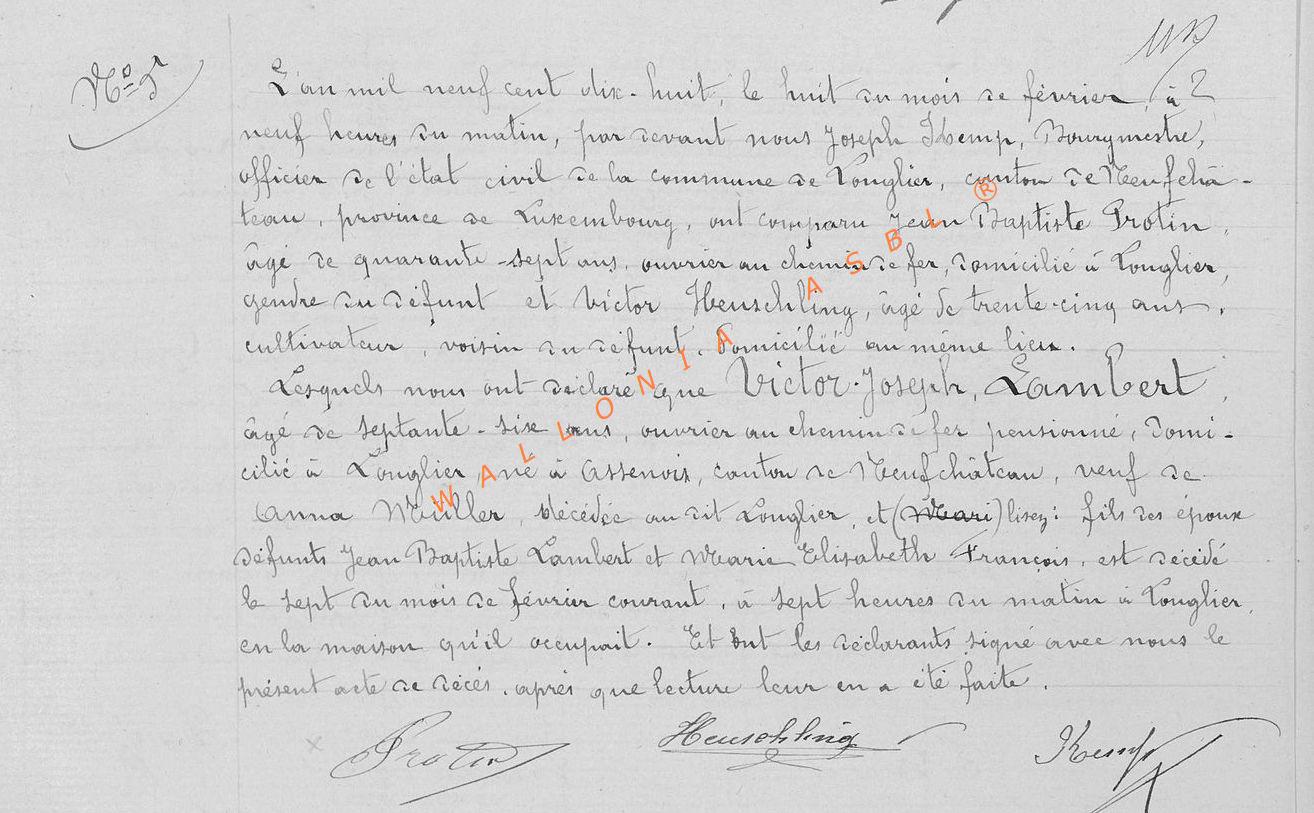 N° 5
L'an mil neuf cent dix-huit, le huit du mois de février, à
neuf heures du matin, par devant nous Joseph Kemp, Bourgmestre,
officier de l'état civil de la commune de Longlier, canton de Neufchâ-
teau, province de Luxembourg, ont comparu Jean Baptiste Protin,
âgé de quarante-sept ans, ouvrier au chemin de fer, domicilié à Longlier,
gendre du défunt et Victor Heuschling, âgé de trente-cinq ans,
cultivateur, voisin du défunt, domicilié au même lieu.
Lesquels nous ont déclaré que Victor-Joseph, Lambert,
âgé de septante-six ans, ouvrier au chemin de fer pensionné, domi-
cilié à Longlier, né à Assenois, canton de Neufchâteau, veuf de
Anna Müller, décédée au dit Longlier, et (Mari) lisez: fils des époux
défunts Jean Baptiste Lambert et Marie Elisabeth François, est décédé
le sept du mois de février courant, à sept heures du matin à Longlier,
en la maison qu'il occupait. Et ont les déclarants signé avec nous le
présent acte de décès, après que lecture leur en a été faite.
Protin Heuschling Kemp
WALLONIA ASBL ®